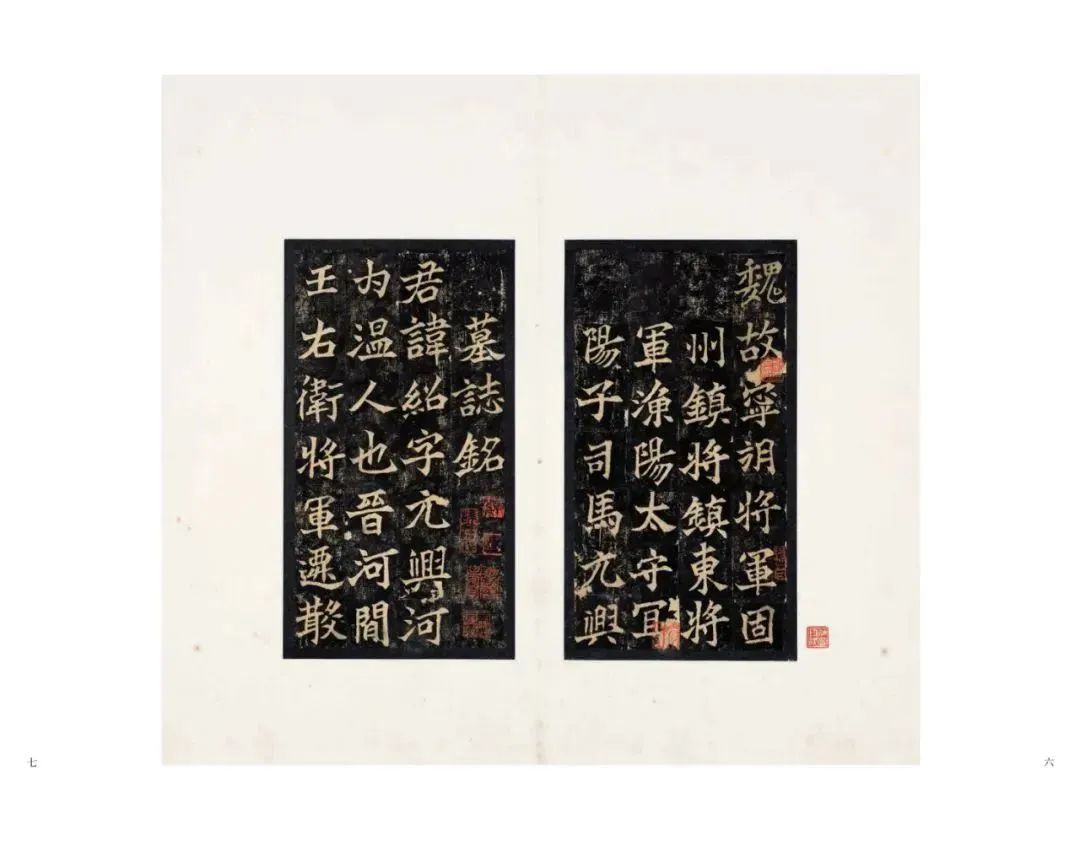 魏故寧朔將軍固
州鎮將鎮東將
軍漁陽太守宜
陽子司馬元興
墓誌銘
君諱紹字元興河
內溫人也晉河間
王右衛將軍遷散
六
七